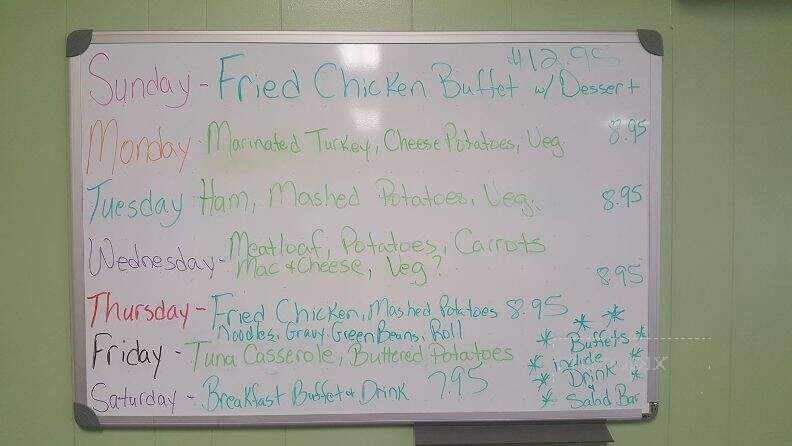 Sunday - Fried Chicken Buffet w/ Dessert $12.95
Monday - Marinated Turkey, Cheese Potatoes, Veg. 8.95
Tuesday Ham, Mashed Potatoes, Veg. 8.95
Wednesday - Meatloaf, Potatoes, Carrots
Mac & Cheese, Veg? 8.95
Thursday - Fried Chicken, Mashed Potatoes 8.95
Noodles, Gravy, Green Beans, Roll
Friday - Tuna Casserole, Buttered Potatoes
Saturday - Breakfast Buffet & Drink 7.95
* * *
* Buffets *
* include *
* Drink *
&
* Salad Bar